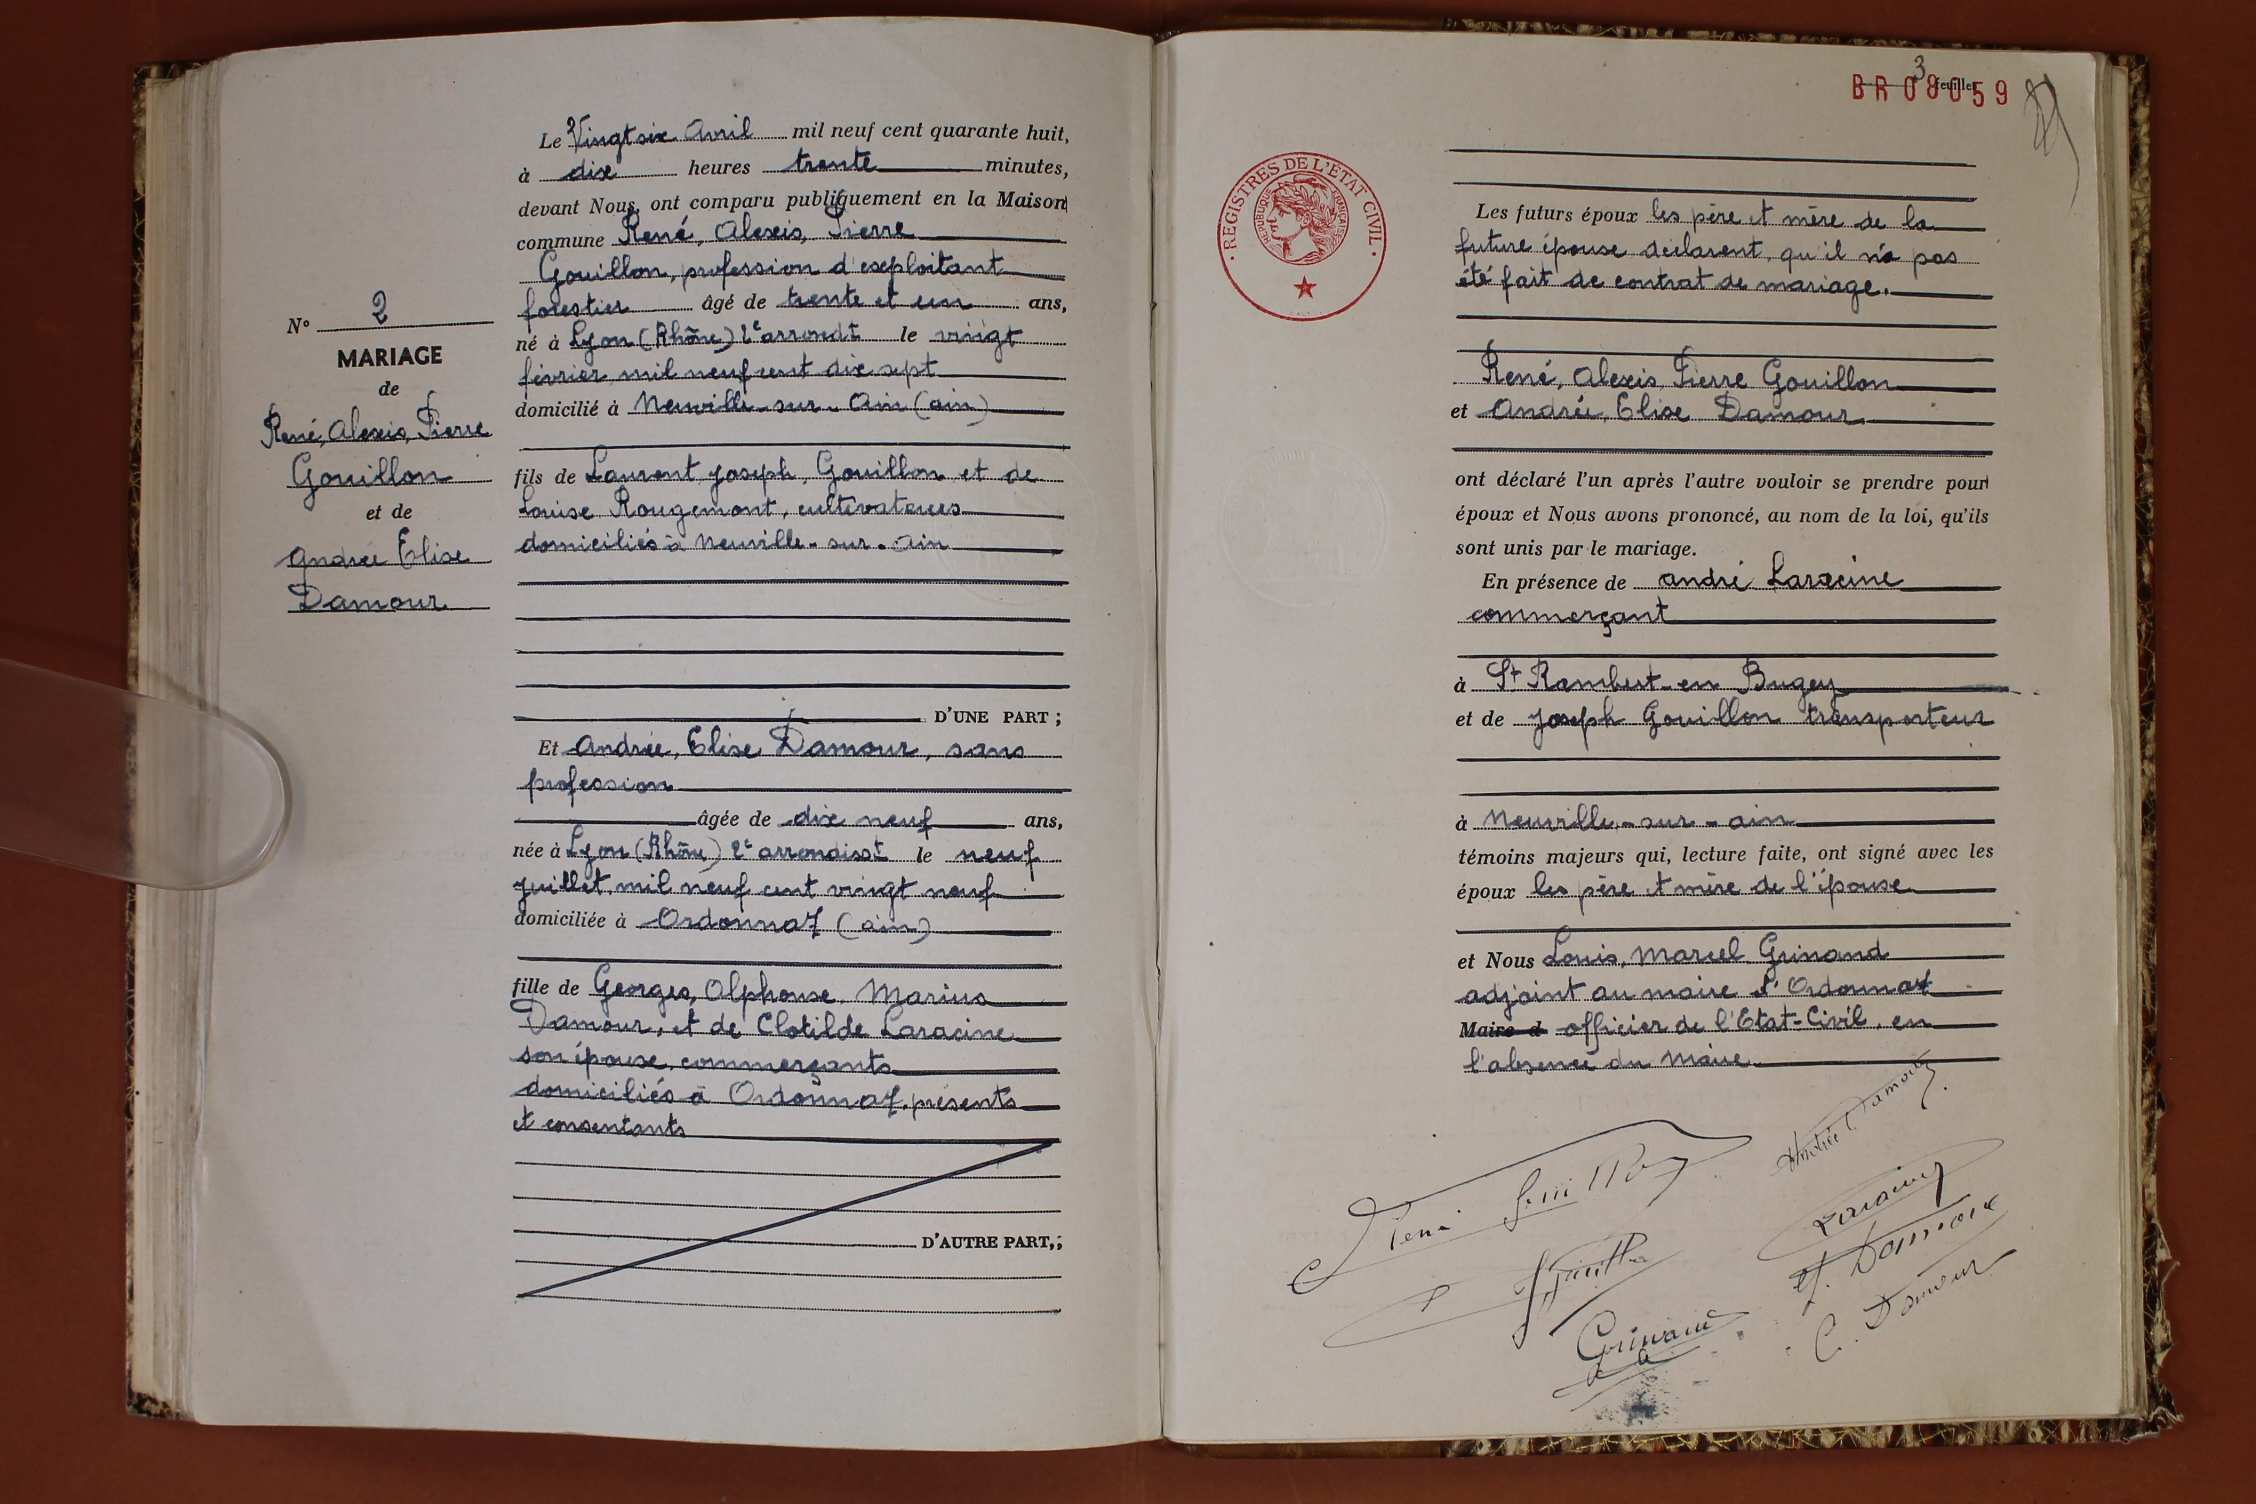 N° 2
MARIAGE
de
René, Alexis, Pierre
Gouillon
et de
Andrée Elise
Damour
Le Vingt six Avril mil neuf cent quarante huit,
à dix heures trente minutes,
devant Nous, ont comparu publiquement en la Maison
commune René, Alexis, Pierre
Gouillon, profession d'exploitant
forestier âgé de trente et un ans,
né à Lyon (Rhône) 2e arrondt le vingt
février mil neuf cent dix sept
domicilié à Neuville-sur-Ain (ain)
fils de Laurent Joseph, Gouillon et de
Louise Rougemont, cultivateurs
domiciliés à Neuville-sur-Ain
D'UNE PART ;
Et Andrée, Elise Damour, sans
profession
âgée de dix neuf ans,
née à Lyon (Rhône) 2e arrondisst le neuf
juillet mil neuf cent vingt neuf
domiciliée à Ordonnaz (ain)
fille de Georges, Alphonse, Marius
Damour, et de Clotilde Laracine
son épouse, commerçants
domiciliés à Ordonnaz, présents
et consentants
D'AUTRE PART, ;
3 feuillet
BR 08059
REGISTRES DE L'ETAT CIVIL
REPUBLIQUE FRANÇAISE
Les futurs époux les père et mère de la
future épouse déclarent, qu'il n'a pas
été fait de contrat de mariage.
René, Alexis, Pierre Gouillon
et Andrée, Elise Damour
ont déclaré l'un après l'autre vouloir se prendre pour
époux et Nous avons prononcé, au nom de la loi, qu'ils
sont unis par le mariage.
En présence de André Laracine
commerçant
à St Rambert-en Bugey
et de Joseph Gouillon transporteur
à Neuville-sur-ain
témoins majeurs qui, lecture faite, ont signé avec les
époux les père et mère de l'épouse
et Nous Louis, Marcel Grinand
adjoint au maire d'Ordonnaz
Maire d officier de l'Etat-Civil, en
l'absence du Maire
Andrée Damour
René Gouillon
Laracine
Damour
Grinand
C. Damour